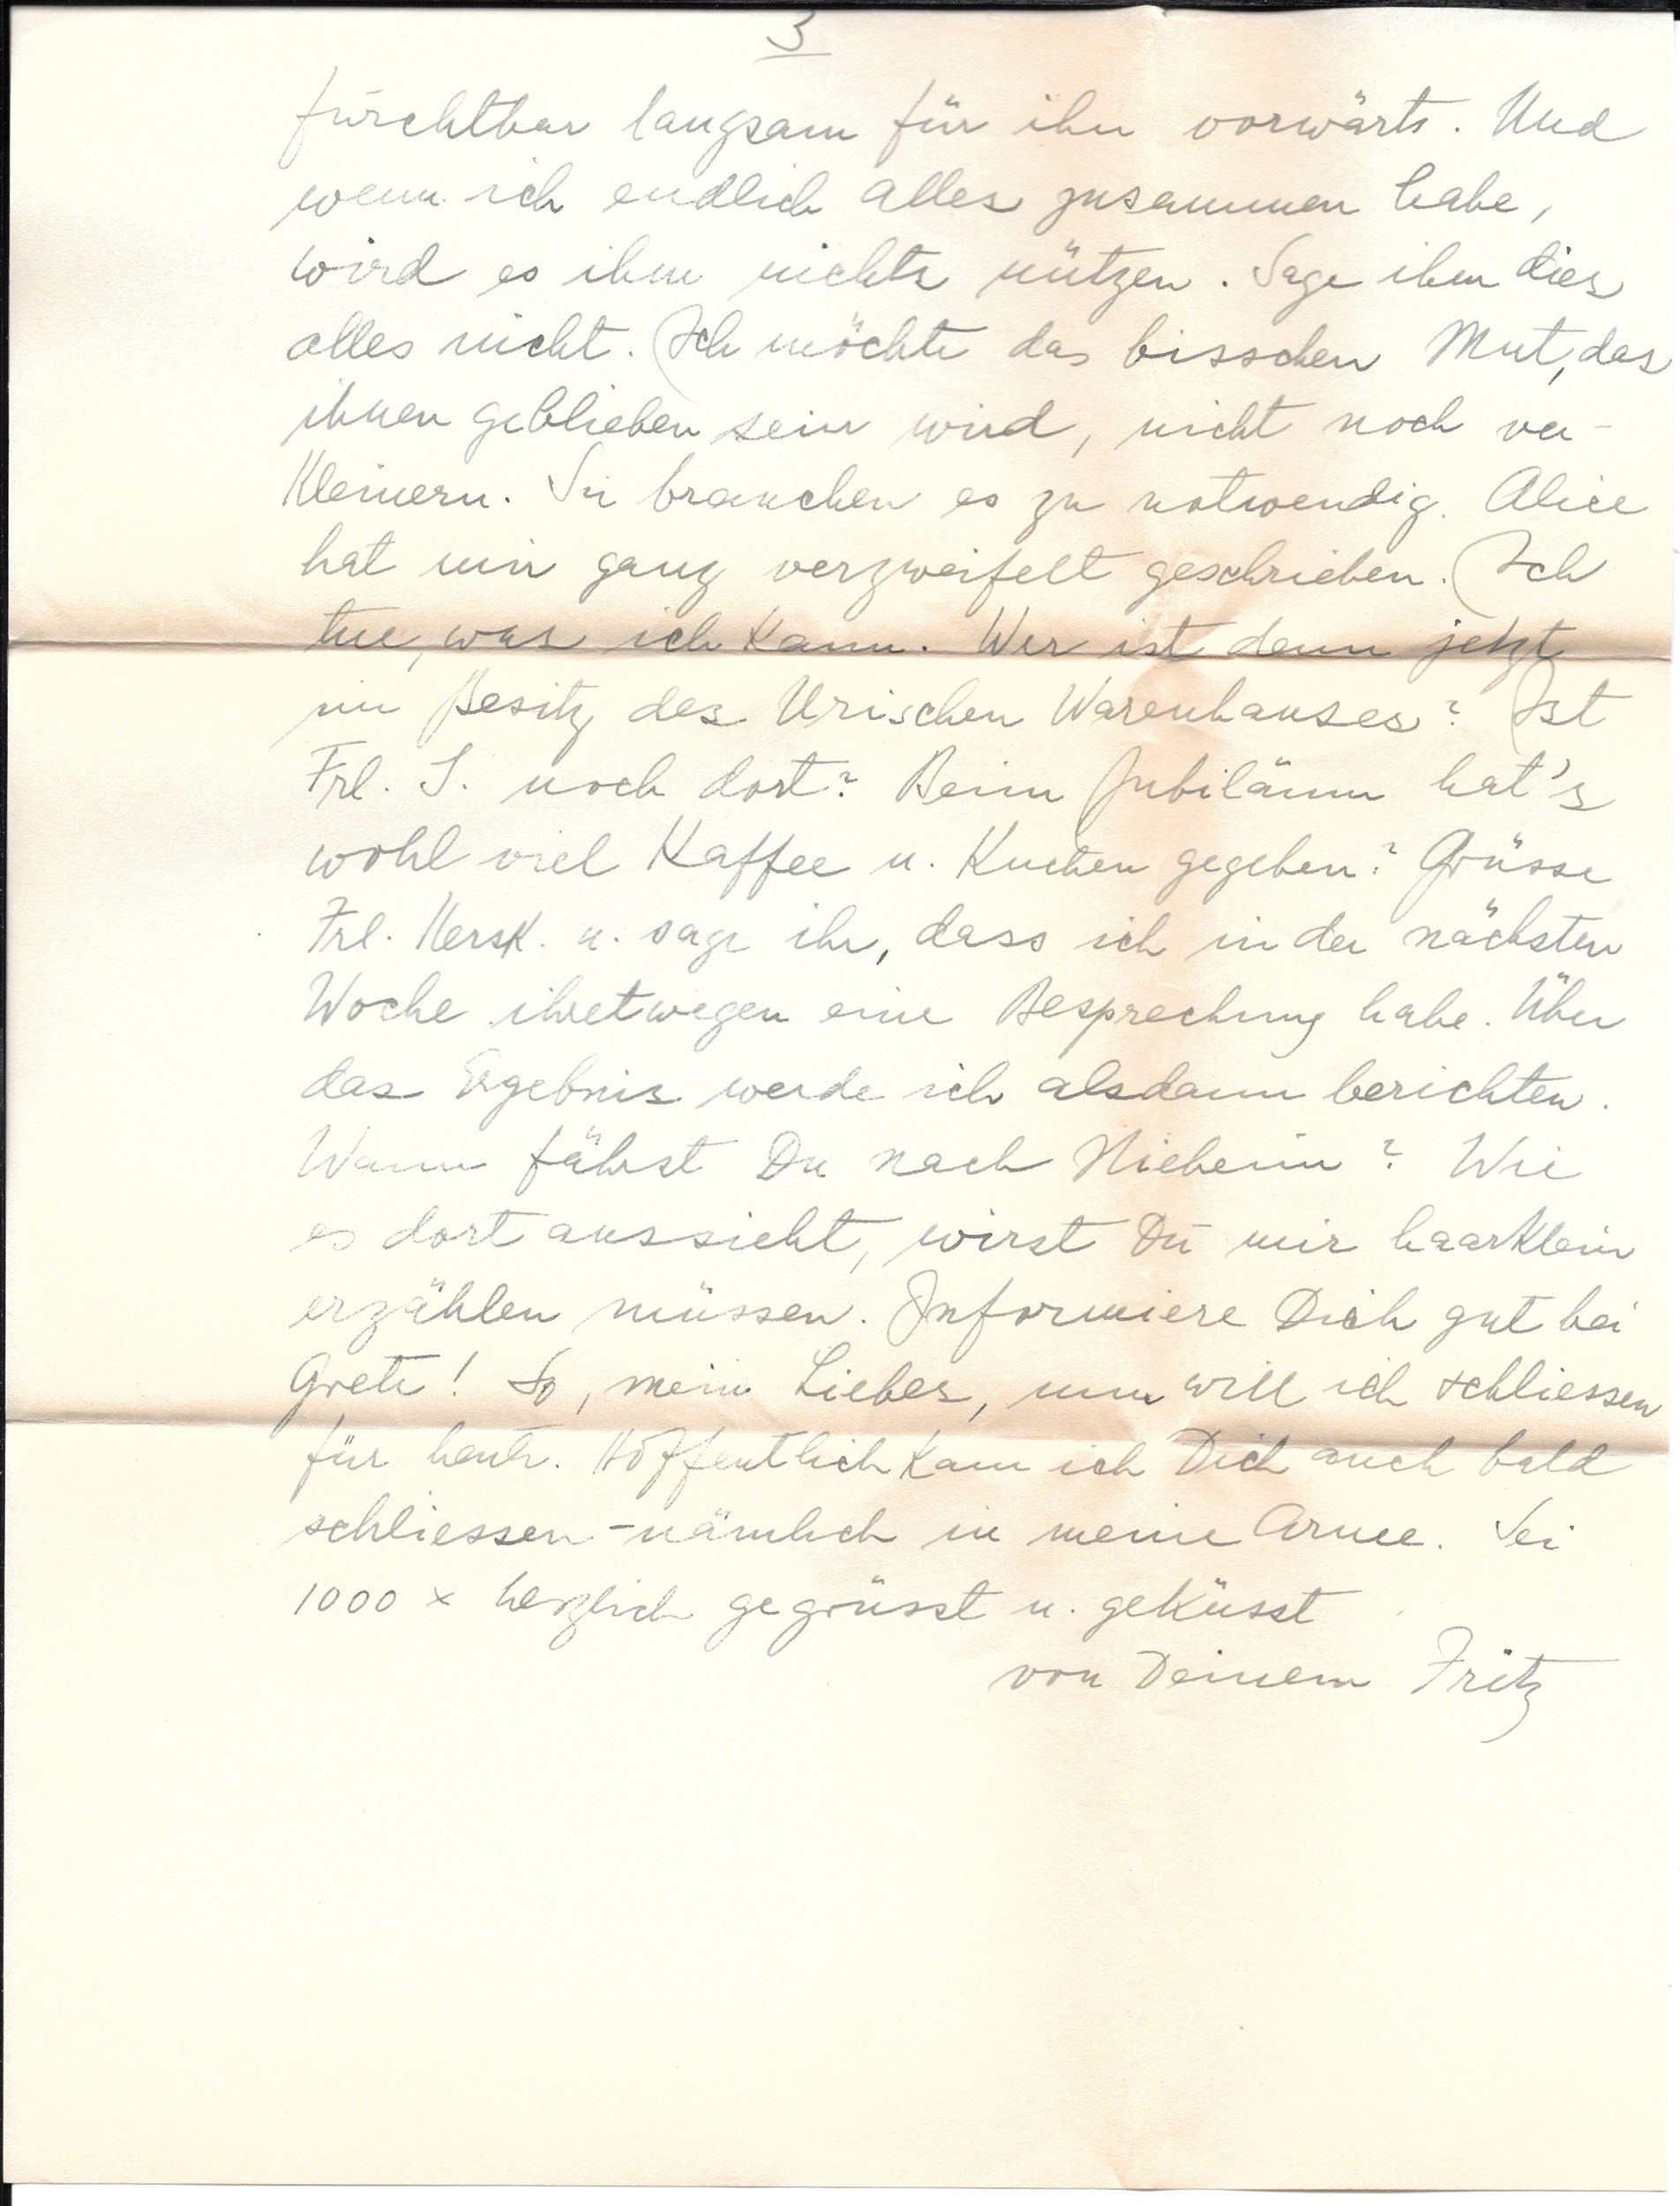 3
furchtbar langsam für ihn vorwärts. Und
wenn ich endlich alles zusammen habe,
wird es ihm nichts nützen. Sage ihm dies
alles nicht. Ich möchte das bisschen Mut, das
ihnen geblieben sein wird, nicht noch ver-
kleinern. Sie brauchen es zu notwendig. Alice
hat mir ganz verzweifelt geschrieben. Ich
tue, was ich kann. Wer ist denn jetzt
im Besitz des Urischen Warenhauses? Ist
Frl. S. noch dort? Beim Jubiläum hat's
wohl viel Kaffee u. Kuchen gegeben? Grüsse
Frl. Hersk. u. sage ihr, dass ich in der nächsten
Woche ihretwegen eine Besprechung habe. Über
das Ergebnis werde ich alsdann berichten.
Wann fährst Du nach Nieheim? Wie
es dort aussieht, wirst Du mir haarklein
erzählen müssen. Informiere Dich gut bei
Grete! So, mein Liebes, nun will ich schliessen
für heute. Hoffentlich kann ich Dich auch bald
schliessen - nämlich in meine Arme. Sei
1000 x herzlich gegrüsst u. geküsst
von Deinem Fritz